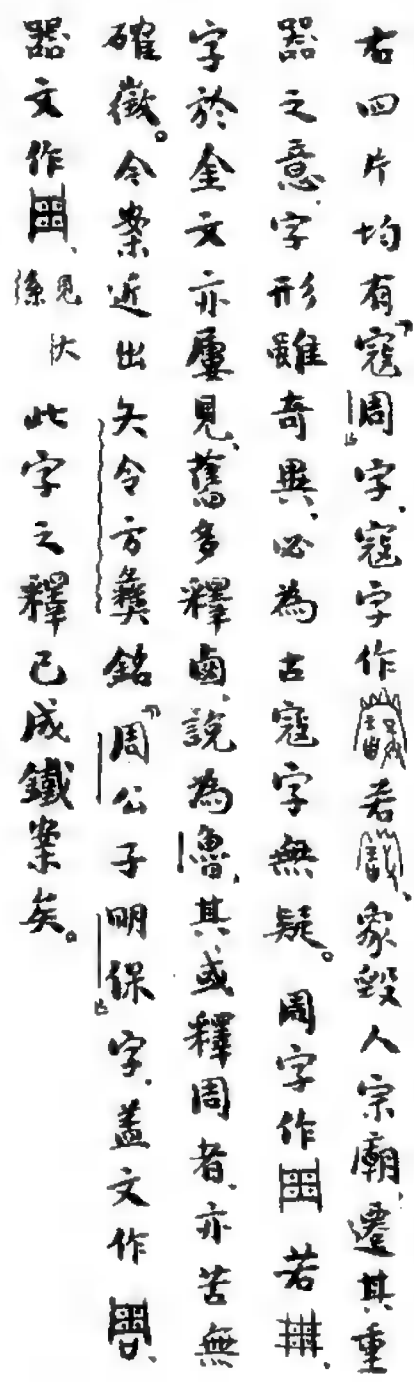 右四片均有「寇周」字、寇字作若、象毀人宗廟、遷其重
器之意、字形雖奇異、必為古寇字無疑。周字作若、
字於金文亦屢見、舊多釋鹵、說為魯、其或釋周者、亦苦無
確徵。今案近出矢令方彝銘「周公子明保」字、蓋文作、
器文作、見大係此字之釋已成鐵案矣。